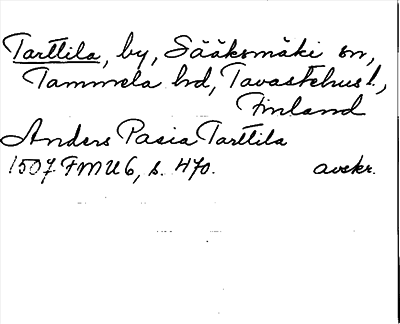 Tarttila, by, Sääksmäki sn,
Tammela hd, Tavastehus l.,
Finland
Anders Pacia Tarttila
1507 FMU 6, s. 470. avskr.